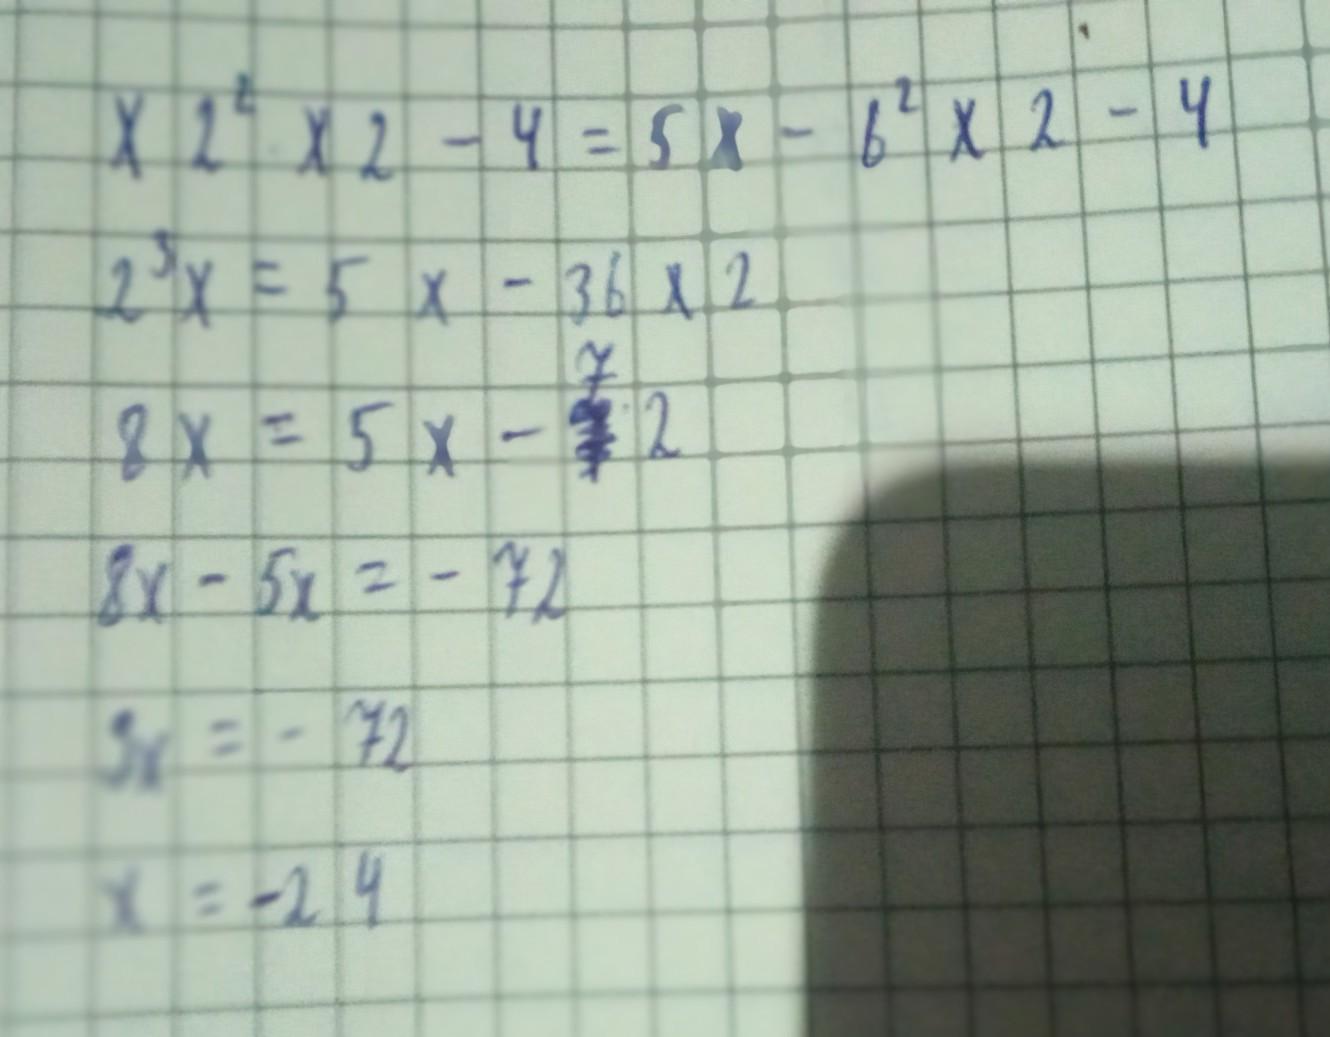 x 2² x 2 - 4 = 5 x - 6² x 2 - 4
2³x = 5 x - 36 x 2
8 x = 5 x - 7 2
8x - 5x = - 72
3x = - 72
x = -2 4